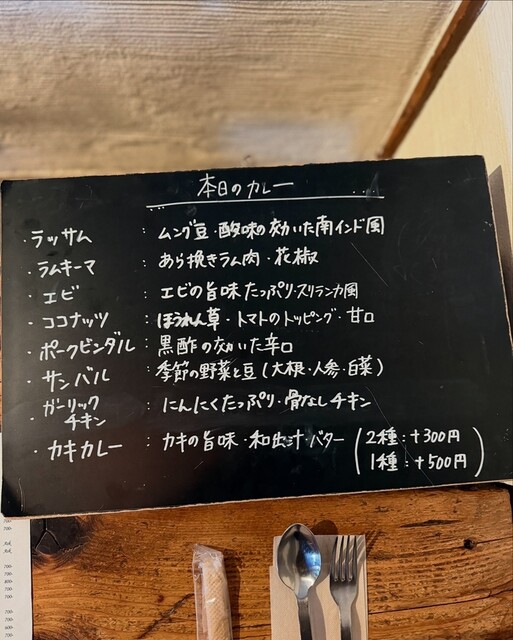 本日のカレー
・ラッサム : ムング豆・酸味の効いた南インド風
・ラムキーマ : あら挽きラム肉・花椒
・エビ : エビの旨味たっぷり・スリランカ風
・ココナッツ : ほうれん草・トマトのトッピング・甘口
・ポークビンダル : 黒酢の効いた辛口
・サンバル : 季節の野菜と豆(大根・人参・白菜)
・ガーリックチキン : にんにくたっぷり・骨なしチキン
・カキカレー : カキの旨味・和出汁・バター (2種:+300円
1種:+500円)